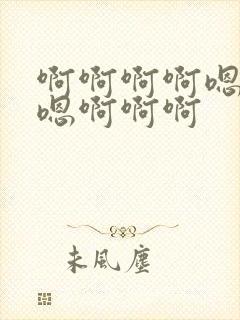 啊啊啊啊嗯
嗯啊啊啊
未風塵